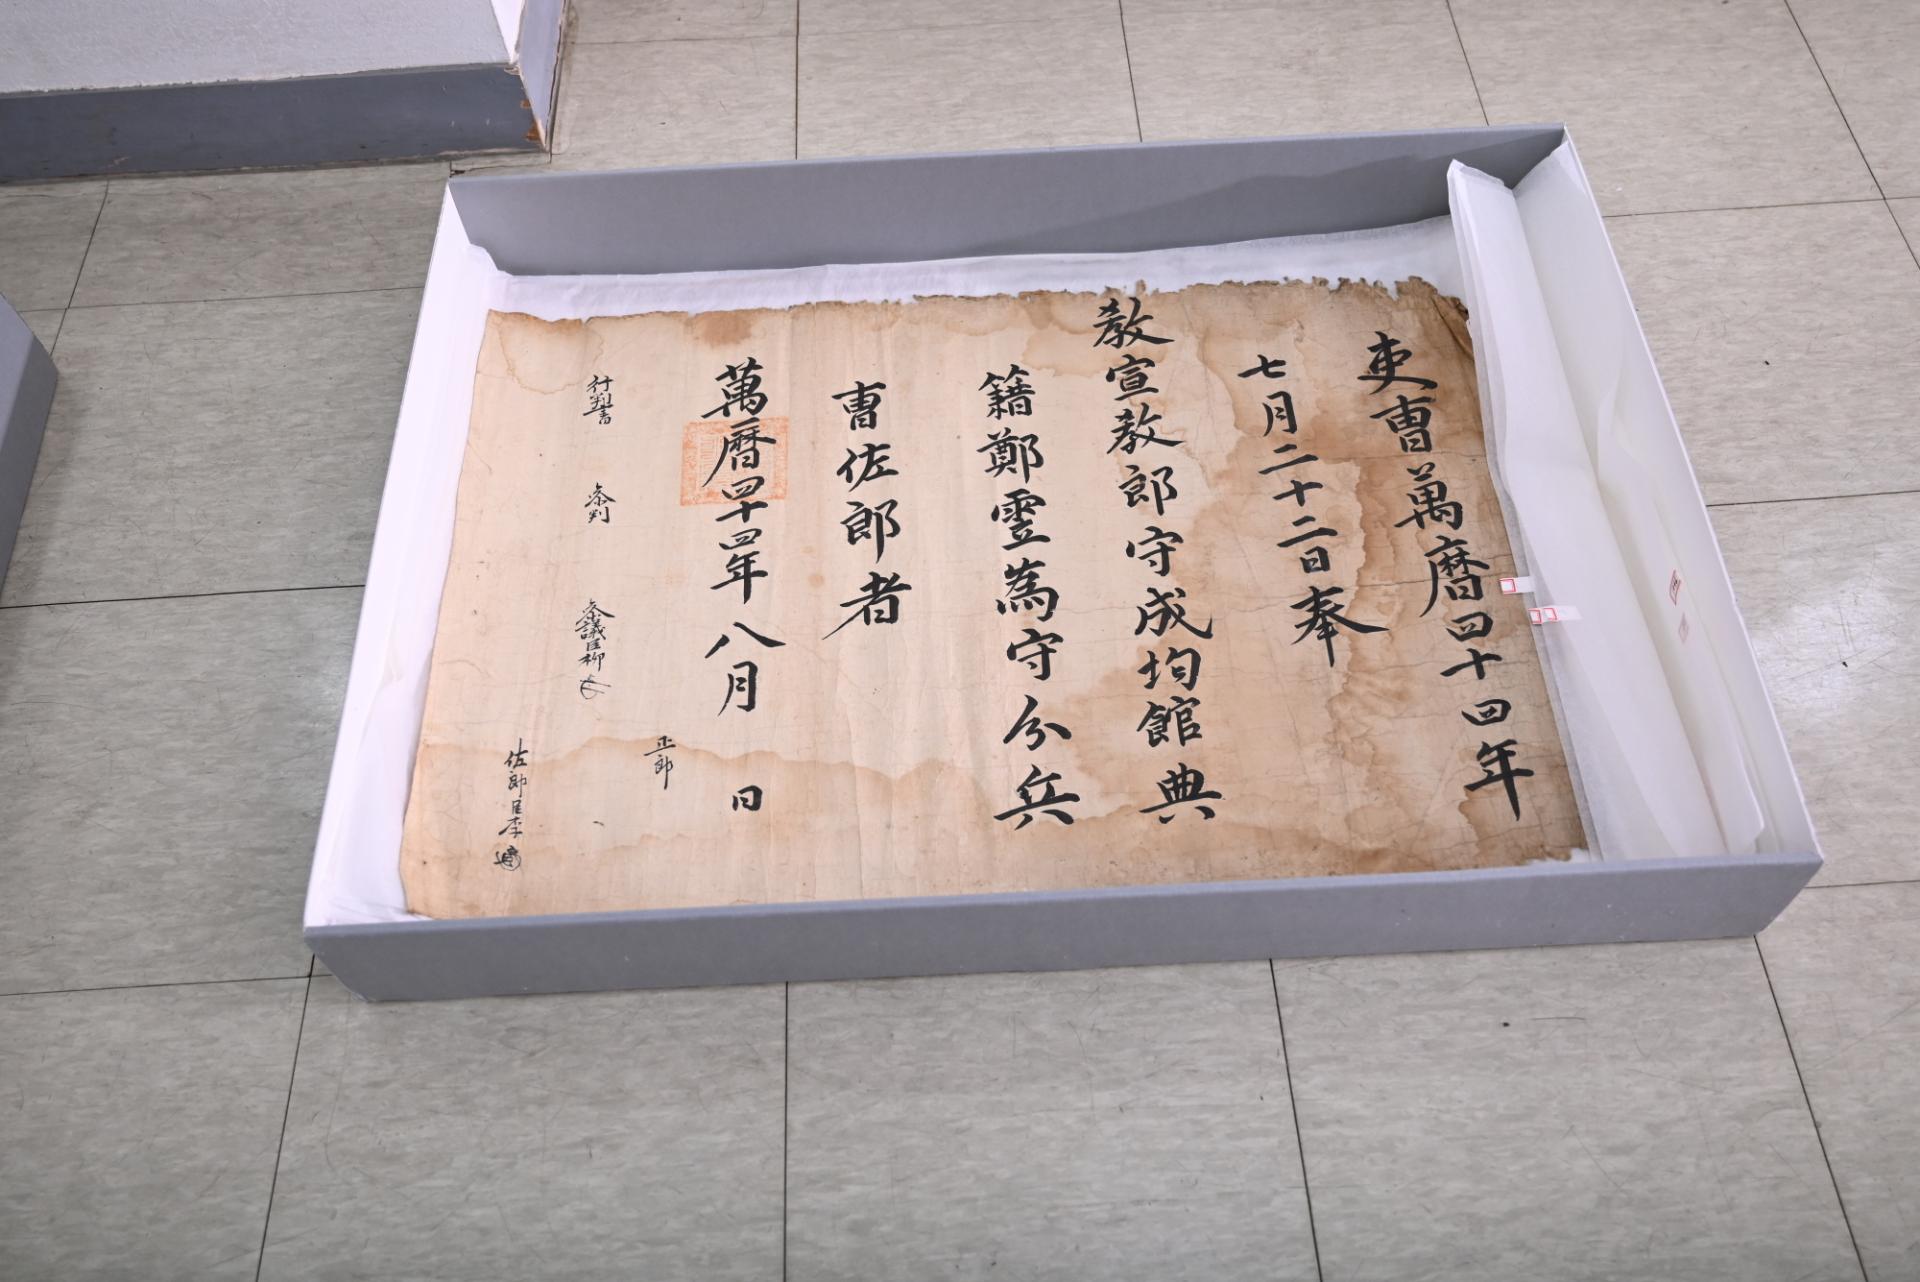 吏曹萬曆四十四年
七月二十二日奉
敎宣敎郎守成均館典
籍鄭霊為守分兵
曹佐郎者
萬曆四十四年八月　日
正郎
行判書　參判　參議臣柳
佐郎臣李